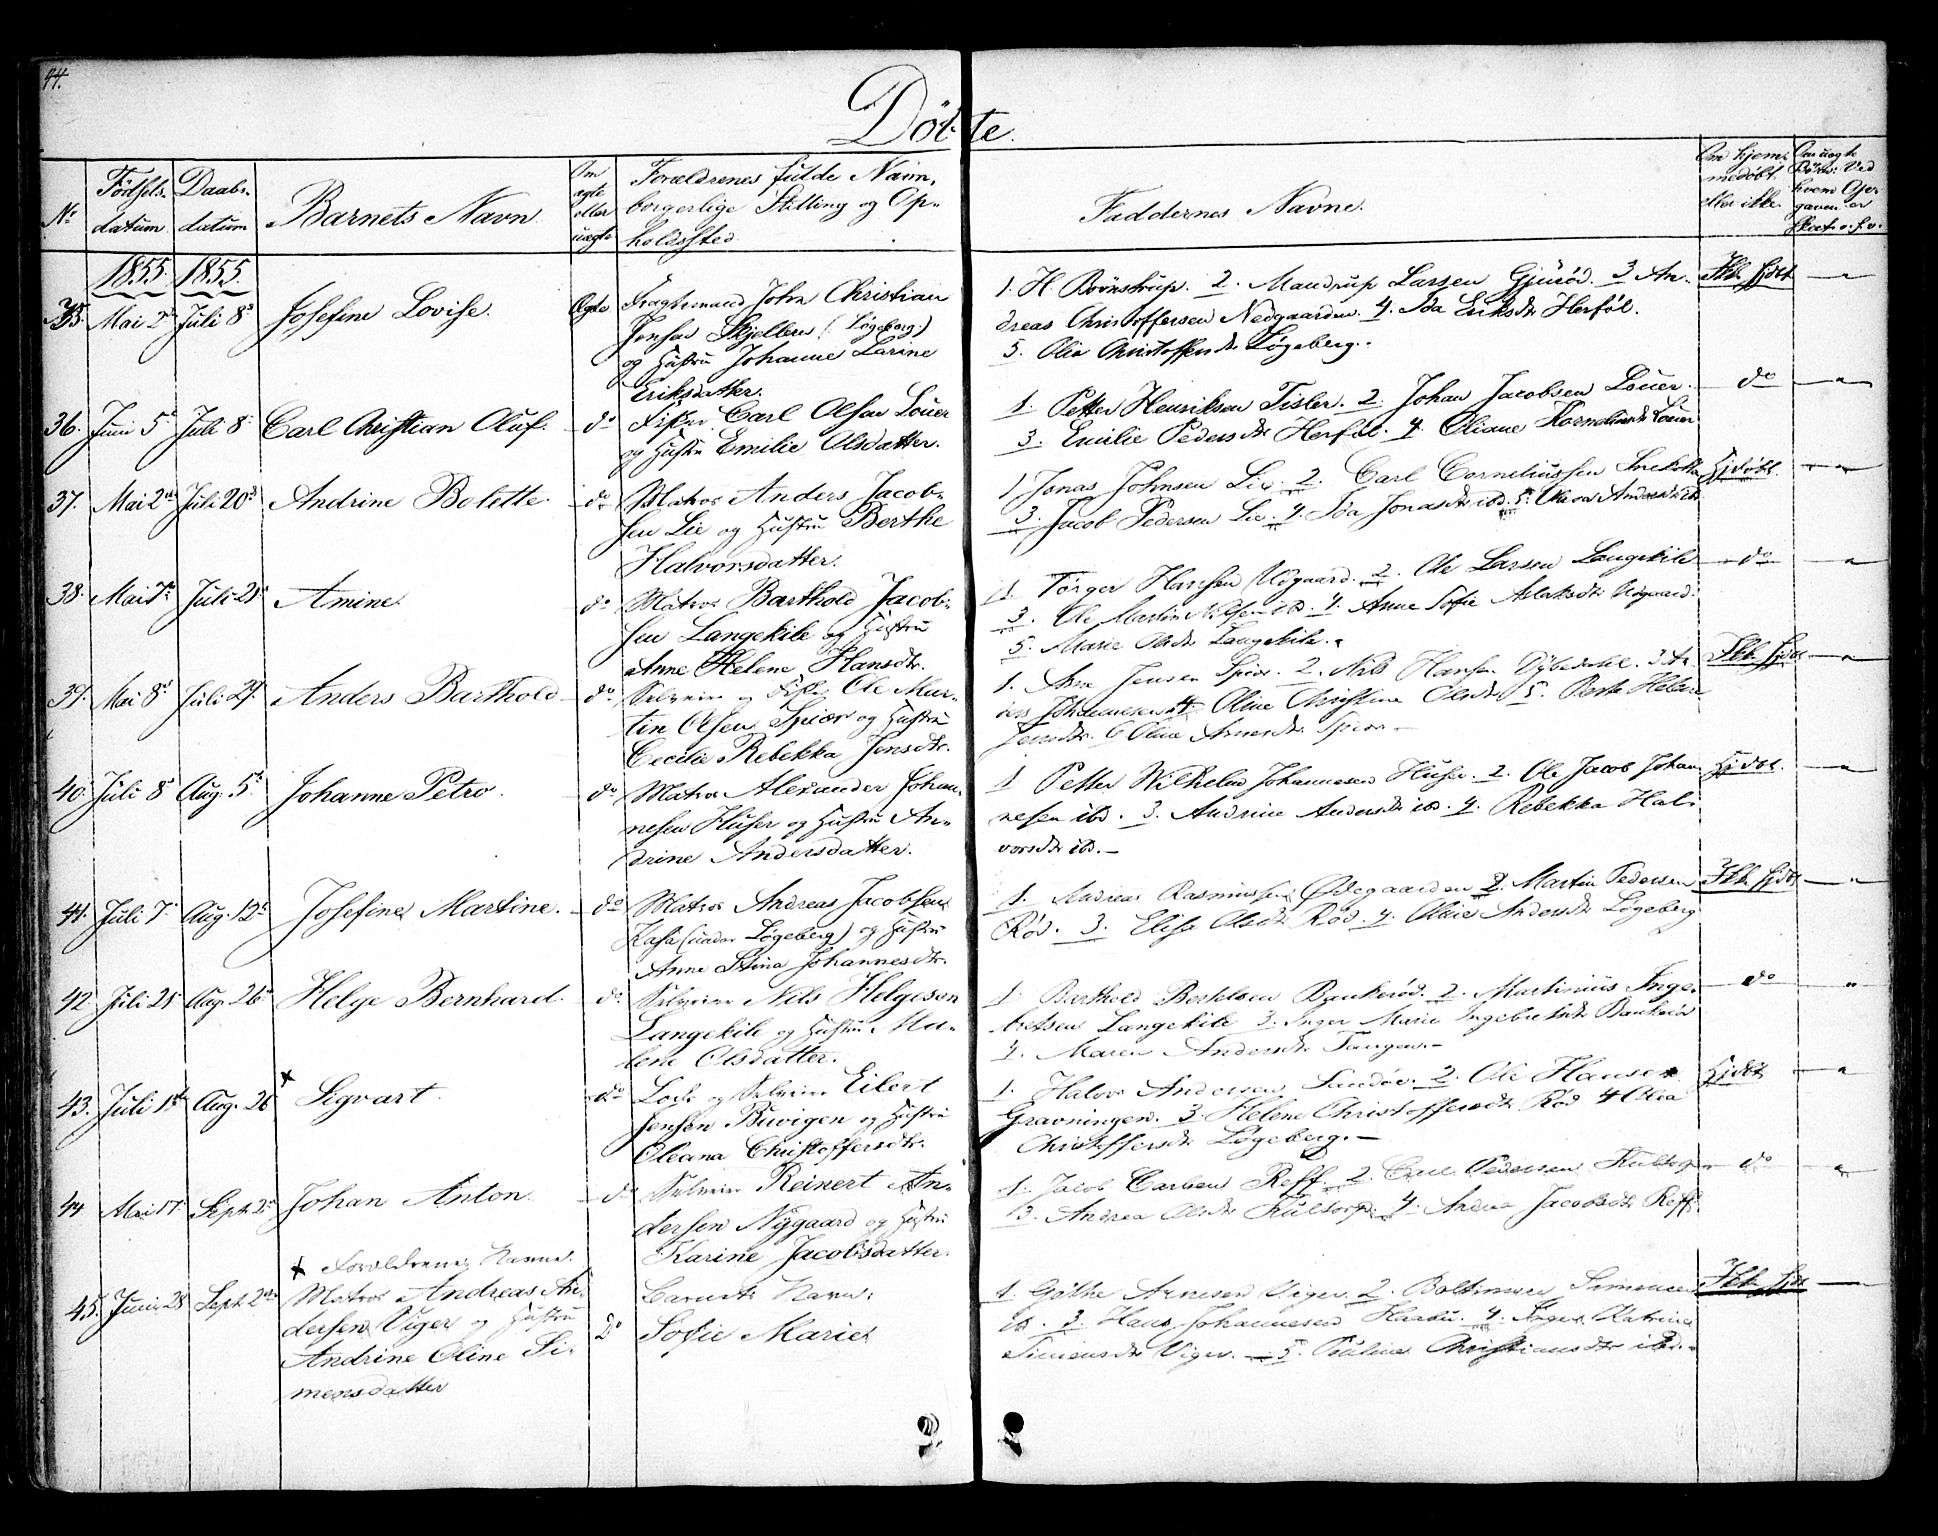 44.
Döbte.
No
Födsels-
datum.
Daabs-
datum
Barnets Navn
Om
ægte
eller
uægte
Forældrenes fulde Navn,
borgerlige Stilling og Op-
holdssted
Faddernes Navne.
Om hjem-
medöbt
eller ikke.
1855. 1855.
35. Mai 2den Juli 8de Josefine Lovise. Ægte Fragtemand John Christian
Jensen Skjelleren (Løgeberg.)
og Hustru Johanne Larine
Eriksdatter.
1. H Brönstrup. 2. Mandrup Larsen Gjeuröd. 3 An-
dreas Christoffersen Nedgaarden. 4. Ida Eriksdtr Herföl.
5. Olia Christoffersdtr Løgeberg.
Ikk hjdöt — "
36. Juni 5te Juli 8. Carl Christian Oluf. do Fisker Carl Olsen Louer
og Hustru Emilie Olsdatter.
1. Petter Henriksen Tisler. 2. Johan Jacobsen Louer.
3. Emilie Pedersdtr Herföl. 4. Oliane Korneliusdtr Louer
do — "
37. Mai 2den Juli 20de Andrine Bolette. do Matros Anders Jacob-
sen Lie og Hustru Berthe
Halvorsdatter.
1 Jonas Johnsen Lie. 2. Carl Corneliussen
3. Jacob Pedersen Lie. 4. Ida Jonasdtr ibd. 5. Andersdtr ibd
Hjdöbt. — "
38. Mai 7de Juli 21 Amine. do Matros Barthold Jacob-
sen Langekile og Hustru
Anne Helene Hansdtr.
1. Törger Hansen Udgaard. 2. Ole Larsen Langekile
3. Ole Martin Nilsen ibd. 4. Anne Sofie Udgaard.
5. Marie Olsdtr Langekile.
do — "
39. Mai 8de Juli 29. Anders Barthold do Selveier og Fisker Ole Mar-
tin Olsen Spiær og Hustru
Cecilie Rebekka Jensdtr.
1. Jensen Spiær. 2. Nils Hansen Dybedahl. 3 An-
ders Johannesen 4 Oline Christine Olsdtr 5. Berte Helene
Jensdtr. 6 Oline Arnesdtr Spiær. —
Ikk hjdöt — "
40. Juli 8de Aug. 5te Johanne Petro. do Matros Alexander Johan-
nesen Huser og Hustru An-
drine Andersdatter.
1 Petter Wilhelm Johannesen Huser. 2. Ole Jacob Johan-
nesen ibd. 3. Andrine Andersdtr ibd 4. Rebekka Hal-
vorsdtr ibd. —
Hjdöt. — "
41. Juli 7de Aug. 12te Josefine Martine. do Matros Andreas Jacobsen
Kasa (under Løgeberg) og Hustru
Anne Stina Johannesdtr.
1. Andreas Rasmussen Ødegaarden 2. Martin Pedersen
Röd. 3. Elise Olsdtr Röd. 4. Olia Andersdtr Løgeberg
Ikk hjdöt — "
42. Juli 21 Aug. 26 Helge Bernhard. do Selveier Nils Helgesen
Langekile og Hustru Ma-
lene Olsdatter.
1. Barthold Bertelsen Bankeröd. 2. Martinius Inge-
bretsen Langekile 3. Inger Marie Ingebretsdtr Bankeröd
4. Maren Andersdtr Tangen. —
do "
43. Juli 1ste Aug. 26 x Sigvart. do Lods og Selveier Eilert
Jensen Buvigen og Hustru
Oleana Christoffersdtr.
1. Halvor Andersen Sandöe. 2. Ole Hansen
Gravningen. 3. Helene Christoffersdtr Röd 4 Olia
Christoffersdtr Løgeberg. —
Hjdöt — "
44 Mai 17 Sept. 2 Johan Anton. do Selveier Reinert An-
dersen Nygaard og Hustru
Karine Jacobsdatter.
1. Jacob Carlsen Reff. 2. Carl Pedersen Kultorp
3. Andrea Olsdtr Kultorp. 4. Andrea Jacobsdtr Reff.
do "
x Forældrenes Navne.
45. Juni 28 Sept. 2den Matros Andreas An-
dersen Viger og Hustru
Andrine Oline Si-
mensdatter
Do
Barnets Navn:
Sofie Marie
1. Göthe Arnesen Viger. 2. Baltimore Simensen
ib. 3. Hans Johannesen 4. Inger Katrine
Simensdtr Viger. — 5. Pauline Christiansdtr ibd. —
Ikk hjdt —